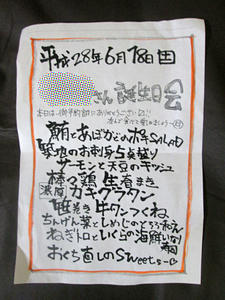 平成28年6月18日田
さん誕生日会
本日は、御予約誠にありがとうございます!!
鮪とあぼかどのポキSALAD
築地のお刺身5点盛り
サーモンと大豆のキッシュ
棒々鶏 生春まき
濃厚 カキグラタン
巻き牛タンつくね
ちんげん菜としめじのとろろ
ねぎトロといくらの海鮮いなり
おくち直しのSweets